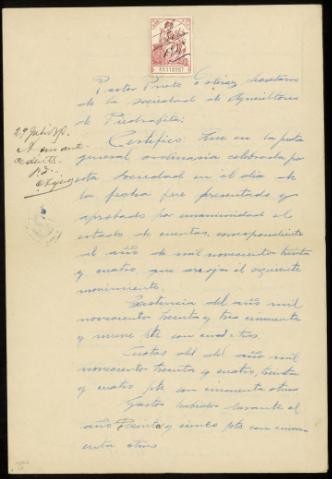 Pastor Prieto Gómez secretario
de la sociedad de Agricultores
de Piedrafita;
Certifico: Que en la junta
general ordinaria celebrada por
esta Sociedad en el día de
la fecha fue presentado y
aprobado por unanimidad el
estado de cuentas, correspondiente
al año de mil novecientos treinta
y cuatro, que arroja el siguiente
movimiento.
Existencia del año mil
novecientos treinta y tres cincuenta
y nueve pts con
Cuotas del del año mil
novecientos treinta y cuatro, treinta
y cuatro pts con cincuenta ctms
Gastos habidos durante el
año treinta y cinco pts con cincu
enta ctms
29 Julio